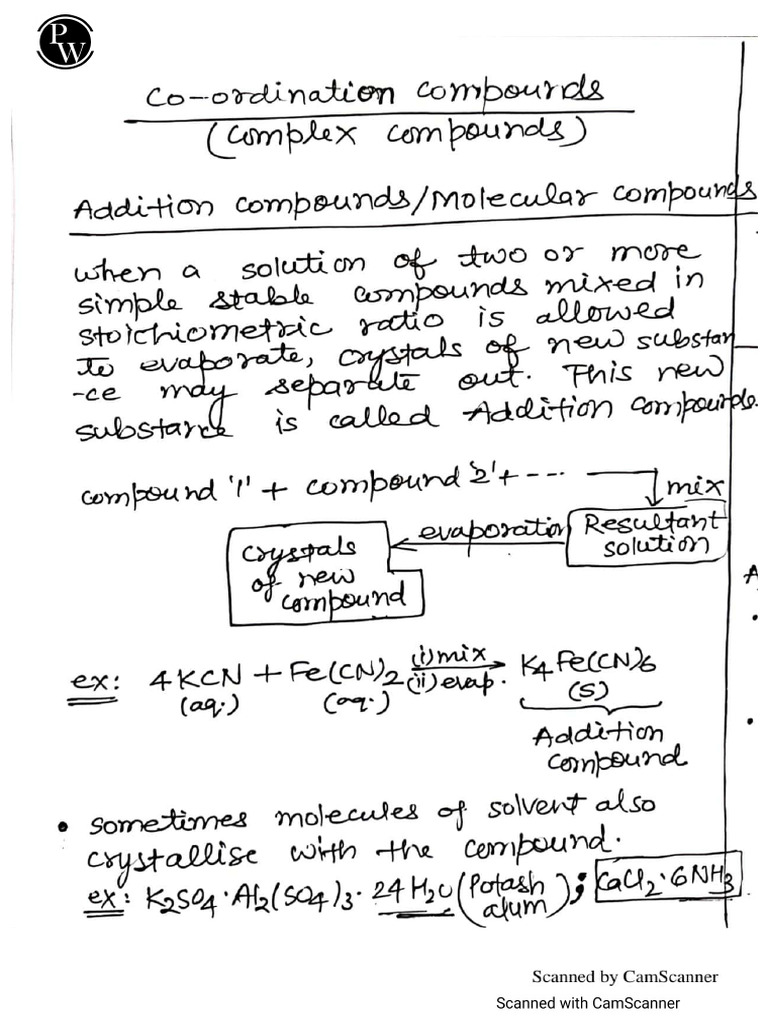 PW
Co-ordination compounds
(complex compounds)
Addition compounds/Molecular compounds
when a solution of two or more
simple stable compounds mixed in
stoichiometric ratio is allowed
to evaporate, crystals of new substan
-ce may separate out. This new
substance is called Addition compounds.
compound '1' + compound '2' + ---
mix
evaporation
Resultant
solution
crystals
of new
compound
ex: 4KCN + Fe(CN)2 (i) mix (ii) evap. → K4Fe(CN)6
(aq.) (aq.) (s)
Addition
compound
• sometimes molecules of solvent also
crystallise with the compound.
ex: K2SO4·Al2(SO4)3·24H2O (Potash alum); CaCl2·6NH3
Scanned by CamScanner
Scanned with CamScanner